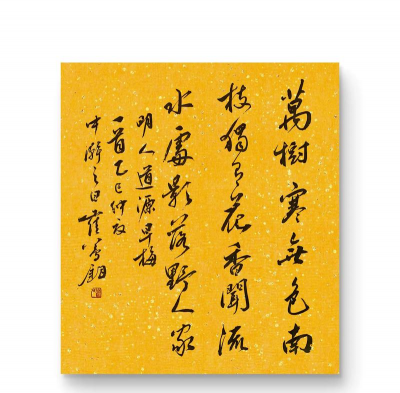 萬樹寒無色南
枝獨有花香聞流
水處影落野人家
明人道源早梅
一首乙巳仲秋